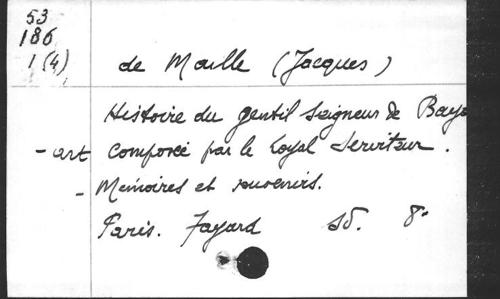 53
186
1(4)
de Maille (Jacques)
Histoire du gentil Seigneur de Bay
- art composé par le Loyal Serviteur.
- Mémoires et souvenirs.
Paris. Fayard sd. 8°